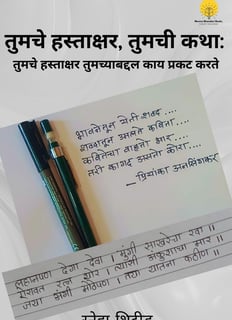 तुमचे हस्ताक्षर, तुमची कथा:
तुमचे हस्ताक्षर तुमच्याबद्दल काय प्रकट करते
भावनेतून येती शब्द ....
शब्दातून उमलते कविता ....
कवितेचा वाहतो भार ....
तरी कागद असतो कोरा ....
— प्रियांका अनसिंगकर
लहानपण देगा देवा । मुंगी साखरेचा रवा ॥
ऐरावत रत्न थोर । त्यासी अंकुशाचा मार ॥
जया अंगी मोठेपण । तया यातना कठीण ॥